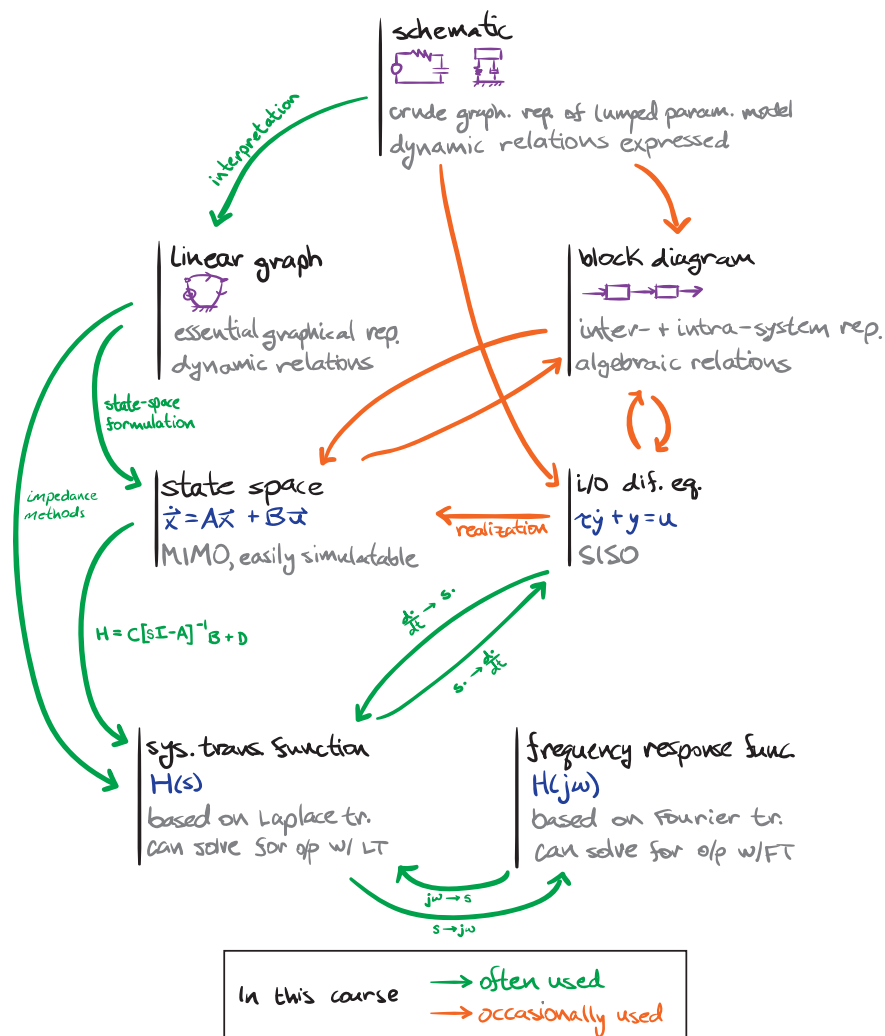 schematic
crude graph. rep. of lumped param. model
dynamic relations expressed
interpretation
linear graph
essential graphical rep.
dynamic relations
block diagram
inter- + intra-system rep.
algebraic relations
state-space
formulation
impedance
methods
state space
ẋ⃗ = Ax⃗ + Bu⃗
MIMO, easily simulatable
realization
i/o dif. eq.
τẏ + y = u
SISO
H = C[sI-A]⁻¹B + D
d·/dt → s·
s· → d·/dt
sys. trans. function
H(s)
based on Laplace tr.
can solve for o/p w/ LT
frequency response func.
H(jω)
based on Fourier tr.
can solve for o/p w/FT
jω → s
s → jω
In this course
→ often used
→ occasionally used